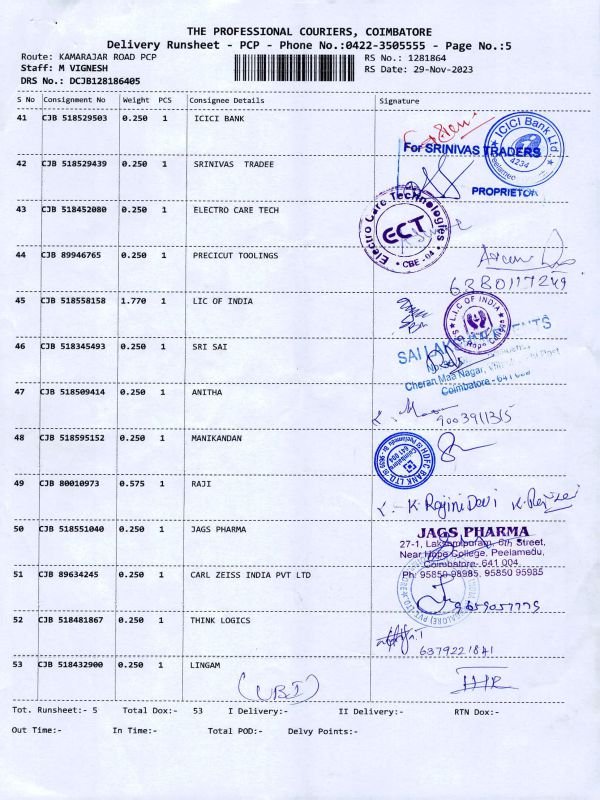 THE PROFESSIONAL COURIERS, COIMBATORE
Delivery Runsheet - PCP - Phone No.:0422-3505555 - Page No.:5
Route: KAMARAJAR ROAD PCP
RS No.: 1281864
Staff: M VIGNESH
RS Date: 29-Nov-2023
DRS No.: DCJB128186405
S No Consignment No Weight PCS Consignee Details Signature
41 CJB 518529503 0.250 1 ICICI BANK
ICICI Bank Ltd.
4234
For SRINIVAS TRADERS
42 CJB 518529439 0.250 1 SRINIVAS TRADEE
PROPRIETOR
43 CJB 518452080 0.250 1 ELECTRO CARE TECH
Electro Care Technologies
ECT
CBE - 04
44 CJB 89946765 0.250 1 PRECICUT TOOLINGS
6380117249
45 CJB 518558158 1.770 1 LIC OF INDIA
L.I.C OF INDIA
46 CJB 518345493 0.250 1 SRI SAI
SAI
Cheran Maa Nagar,
Coimbatore - 641
47 CJB 518509414 0.250 1 ANITHA
9003911315
48 CJB 518595152 0.250 1 MANIKANDAN
HDFC BANK LTD.
Coimbatore
641 004
49 CJB 80010973 0.575 1 RAJI
K. Rajini Devi
50 CJB 518551040 0.250 1 JAGS PHARMA
JAGS PHARMA
27-1, Lakshmipuram, 6th Street,
Near Hope College, Peelamedu,
Coimbatore- 641 004
Ph: 95850 98985, 95850 95985
51 CJB 89634245 0.250 1 CARL ZEISS INDIA PVT LTD
52 CJB 518481867 0.250 1 THINK LOGICS
6379221841
53 CJB 518432900 0.250 1 LINGAM
(UBI)
Tot. Runsheet:- 5 Total Dox:- 53 I Delivery:- II Delivery:- RTN Dox:-
Out Time:- In Time:- Total POD:- Delvy Points:-